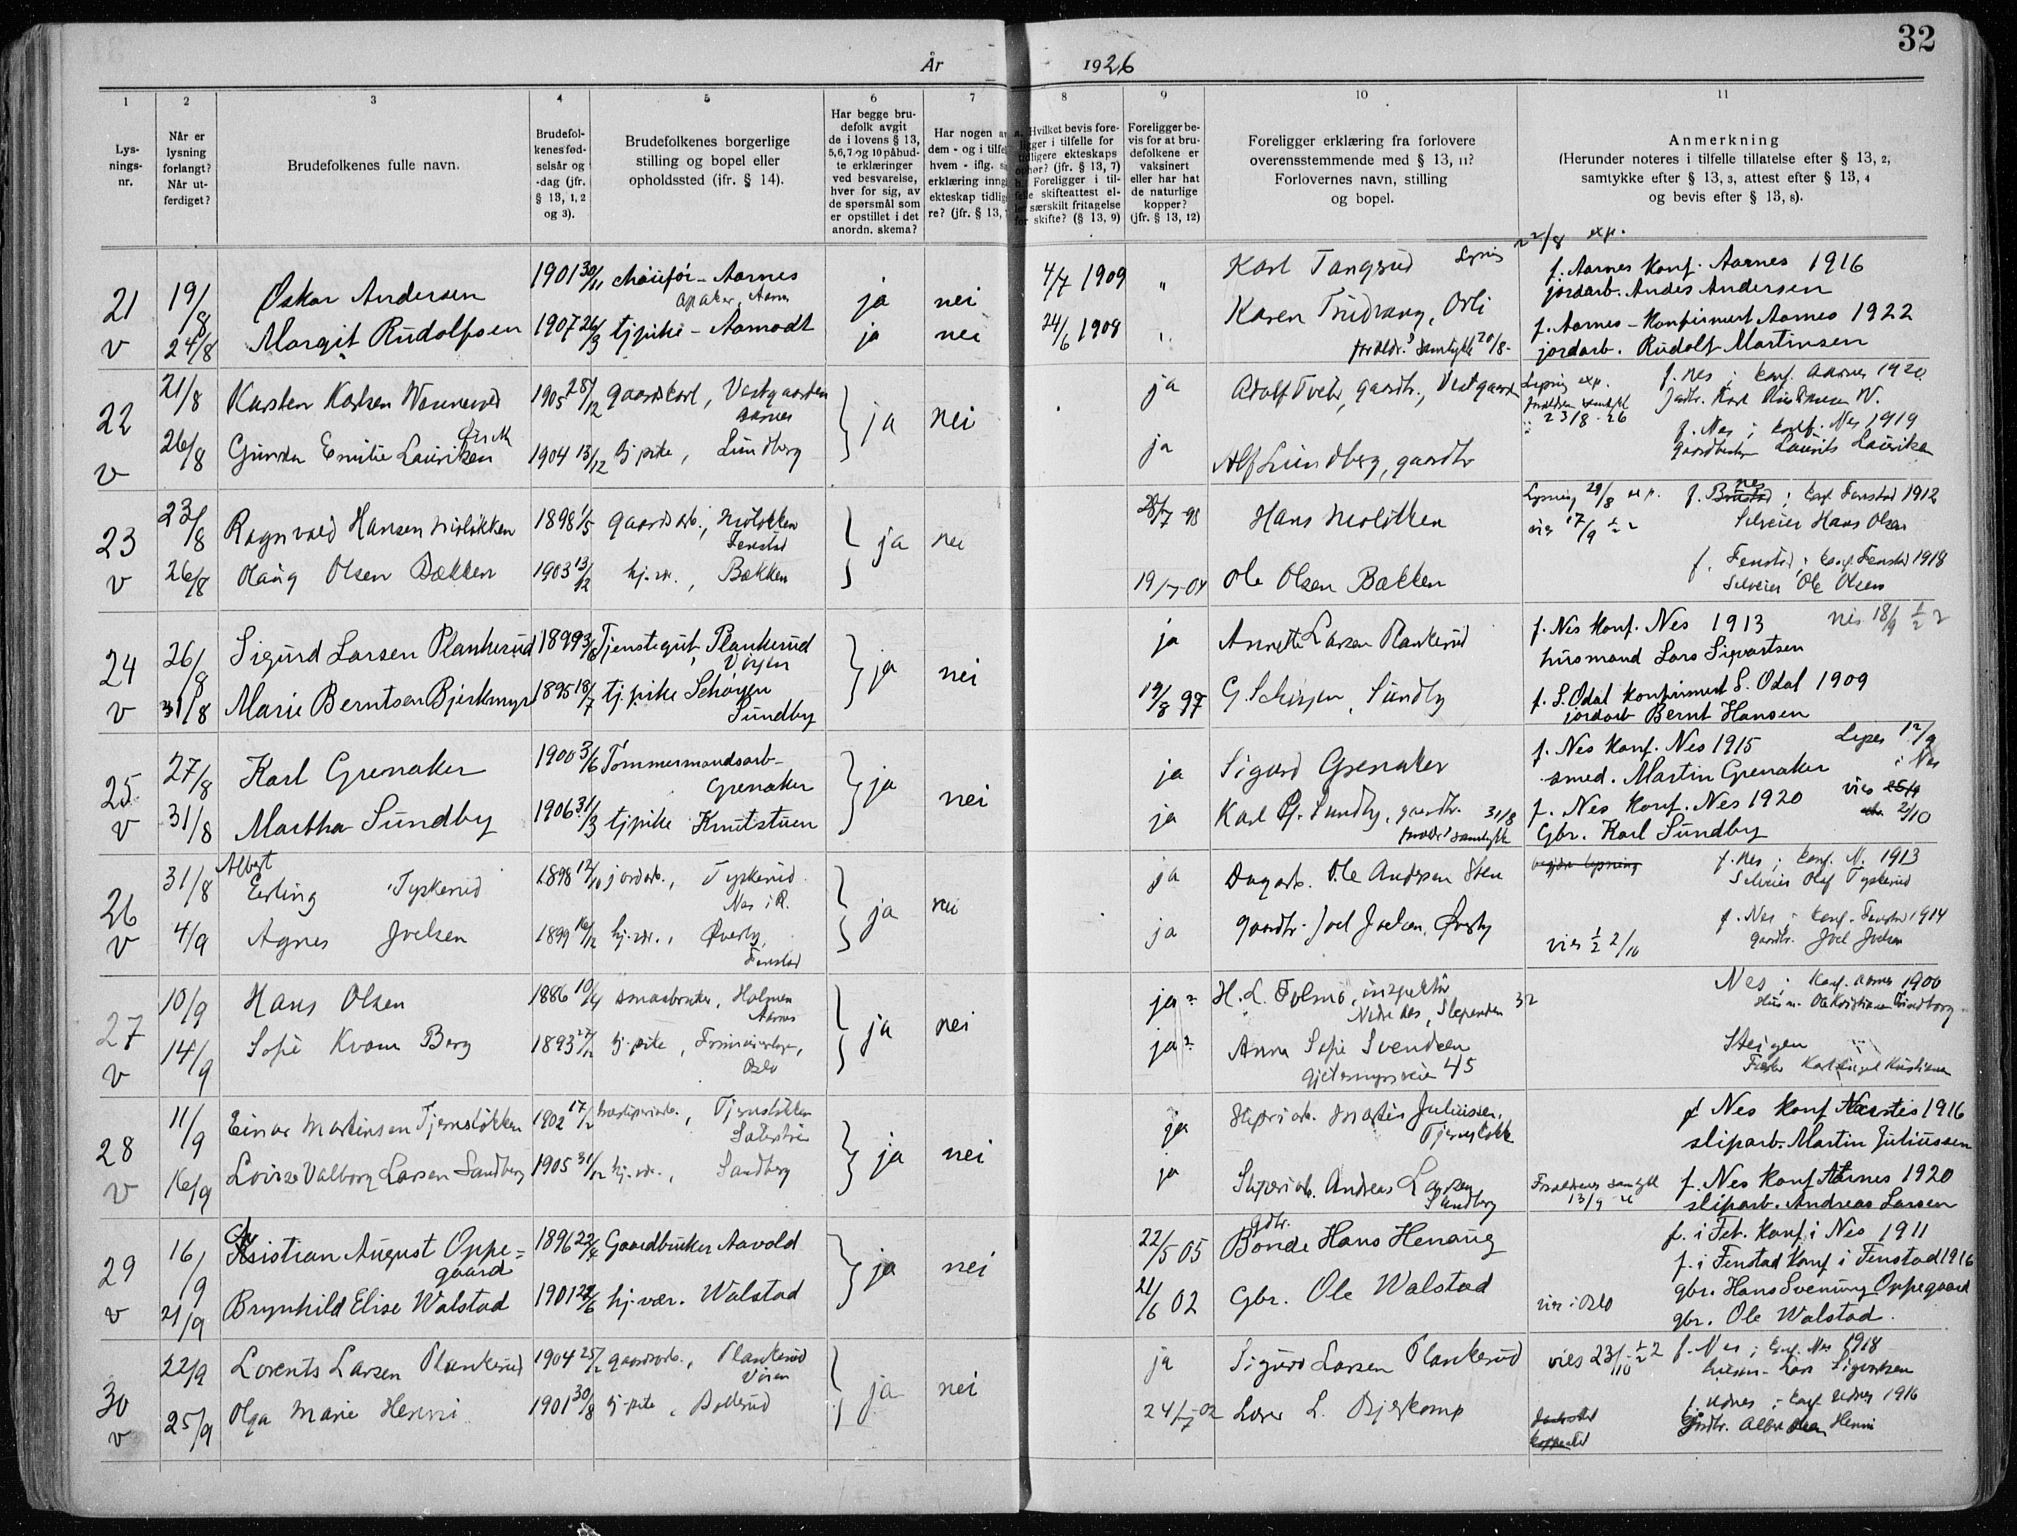 32
År 1926
1 2 3 4 5 6 7 8 9 10 11
Lys-
nings-
nr.
Når er
lysning
forlangt?
Når ut-
ferdiget?
Brudefolkenes fulle navn.
Brudefol-
kenes fød-
selsår og
-dag (jfr.
§ 13, 1, 2
og 3).
Brudefolkenes borgerlige
stilling og bopel eller
opholdssted (ifr. § 14).
Har begge bru-
defolk avgit
de i lovens § 13,
5, 6, 7 og 10 påbud-
te erklæringer
ved besvarelse,
hver for sig, av
de spørsmål som
er opstillet i det
anordn. skema?
Har nogen av
dem - og i tilfe
hvem - iflg. s
erklæring inng
ekteskap tidlig
re? (jfr. § 13,
a. Hvilket bevis fore-
ligger i tilfelle for
tidligere ekteskaps
ophør? (jfr. § 13, 7)
b. Foreligger i til-
felle skifteattest el-
ler særskilt fritagelse
for skifte? (§ 13, 9)
Foreligger be-
vis for at bru-
defolkene er
vaksinert
eller har hat
de naturlige
kopper?
(jfr. § 13, 12)
Foreligger erklæring fra forlovere
overensstemmende med § 13, 11?
Forlovernes navn, stilling
og bopel.
Anmerkning
(Herunder noteres i tilfelle tillatelse efter § 13, 2,
samtykke efter § 13, 3, attest efter § 13, 4
og bevis efter § 13, 8).
21 19/8 Oskar Andersen 1901 30/11 Aarnes ja nei 4/7 1909 " Karl Tangrud Lysning 22/8 exp. f. Aarnes Konf. Aarnes 1916
jordarb. Andes Andersen
v 24/8 Margit Rudolfsen 1907 26/3 tjpike - Aamodt ja nei 24/6 1908 Karen Trudvang, Oxli f. Aarnes - Konfirmert Aarnes 1922
samtykke 20/8- jordarb. Rudolf Martinsen
22 21/8 Karsten Karlsen 1905 28/12 gaardskarl, Vestgaarden
Aarnes ja nei ja Adolf Tveter, gaardbr., Vestgaarden Lysning exp. 23/8-26 f. Nes ; konf. Aarnes 1920
v 26/8 Gunda Emilie Lauritsen 1904 13/12 tj.pike, Lundberg ja Alf Lundberg, gaardbr f. Nes ; konf. Nes 1919
Laurits Lauritsen
23 23/8 Ragnvald Hansen Moløkken 1898 1/5 gaardsarb., Moløkken
Fenstad ja nei 28/7 98 Hans Moløkken Lysning 29/8 exp. f. Nes ; konf. Fenstad 1912
vies 17/9 Selveier Hans Olsen
v 26/8 Olaug Olsen Bækken 1903 13/12 hj.vr., Bækken 19/7-04 Ole Olsen Bækken f. Fenstad ; konf. Fenstad 1918
Selveier Ole Olsen
24 26/8 Sigurd Larsen Plankerud 1899 3/6 Tjenstegut, Plankerud
Vøyen ja nei ja Annette Larsen Plankerud f. Nes Konf. Nes 1913 vies 18/9 ½ 2
husmand Lars Sigvartsen
v 31/8 Marie Berntsen Bjerkmyr 1895 18/7 tj.pike Schøyen
Sundby 19/8 97 G. Schøyen, Sundby f. S. Odal Konfirmert S. Odal 1909
jordarb Bernt Hansen
25 27/8 Karl Grenaker 1900 3/6 Tømmermandsarb-
Grenaker ja nei ja Sigurd Grenaker f. Nes Konf. Nes 1915 12/9
smed. Martin Grenaker i Nes
v 31/8 Martha Sundby 1906 31/3 tjpike Knutstuen ja Karl G. Sundby, gaardbr. 31/8 samtykke f. Nes Konf. Nes 1920 vies 2/10
Gbr. Karl Sundby
26 31/8 Albert
Erling Tyskerud 1898 12/10 jordarb., Tyskerud
Nes i R. ja nei ja Dagarb. Ole Andersen Sten f. Nes ; konf. N. 1913
Selveier Olof Tyskerud
v 4/9 Agnes Joelsen 1899 16/12 hj.vr., Øverby,
Fenstad ja gaardbr. Joel Joelsen, Øverby vies ½ 2/10 f. Nes ; konf. Fenstad 1914
gaardbr. Joel Joelsen
27 10/9 Hans Olsen 1886 10/4 smaabruker, Holmen
Aarnes ja nei ja H. L. Tolmo, inspektør
Nedre Aas, Slependen 32 Nes ; konf. Aarnes 1900
v 14/9 Sofie Kvam Berg 1893 27/12 tj.pike, Oslo ja Anna Sofie Svendsen
Gjetemyrsveie 45 Steigen
28 11/9 Einar Martinsen Tjernsløkken 1902 17/2 Tjernsløkken ja nei ja Sliperiarb. Martin Juliussen,
Tjernsløkk f. Nes Konf Nes 1916
sliparb. Martin Juliussen
v 16/9 Lovise Valborg Larsen Sandberg 1905 31/12 hj.vr., Sandberg ja Sliperiarb. Andreas Larsen
Sandberg Forældrenes samtykk
13/9-26 f. Nes Konf Aarnes 1920
sliparb. Andreas Larsen
29 16/9 Christian August Oppe=
gaard 1896 22/4 Gaardbruker Aavold ja nei 22/5 05 gdbr.
Bonde Hans Henaug f. i Fet. Konf. i Nes 1911
f. i Fenstad Konf i Fenstad 1916
v 21/9 Brynhild Elise Walstad 1901 22/6 hj.vær. Walstad 21/6 02 Gbr. Ole Walstad vies i Oslo gbr. Hans Svenung Oppegaard
gbr. Ole Walstad.
30 22/9 Lorents Larsen Plankerud 1904 25/12 gaardsarb., Plankerud
Vøien ja nei ja Sigurd Larsen Plankerud vies 23/10 ½ 2 f. Nes ; konf. Nes 1918
Lars Sigvartsen
v 25/9 Olga Marie Henni 1901 30/8 tj.pike, Bollerud 24/7-02 L. Bjerkamp f. Udnes ; konf Udnes 1916
Henni